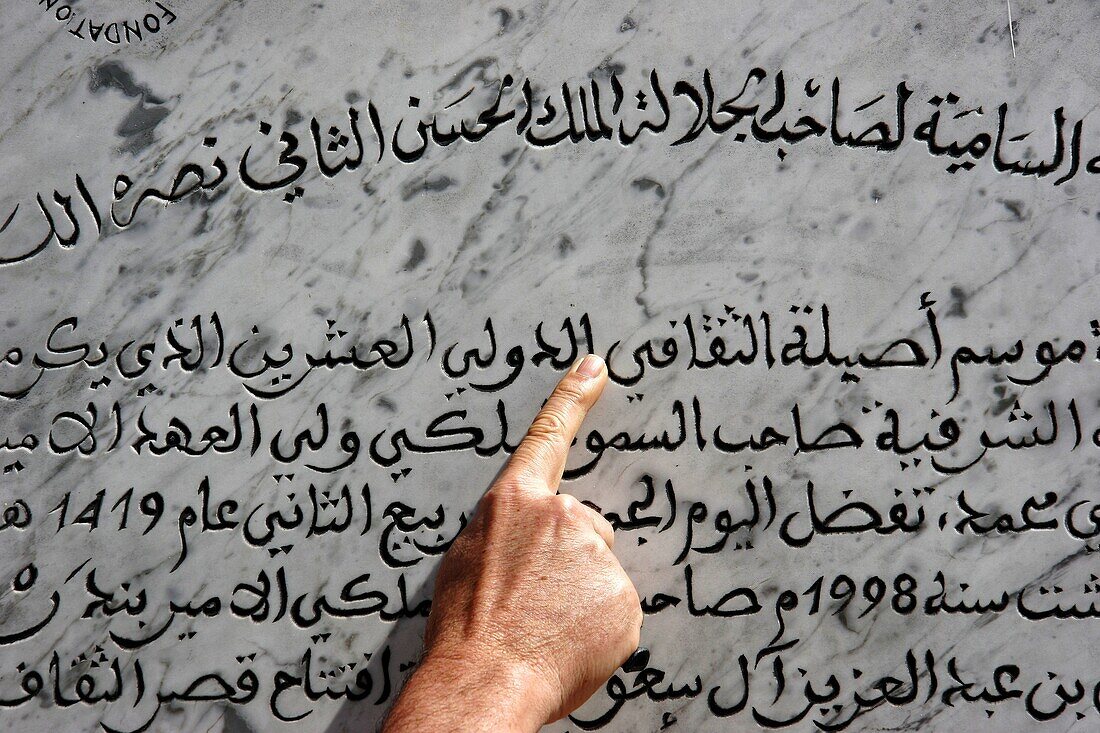 FONDATION
السامية لصاحب الجلالة الملك الحسن الثاني نصره الله
موسم أصيلة الثقافي الدولي العشرين الذي يكرم
الشرفية صاحب السمو الملكي ولي العهد الامير
محمد، تفضل اليوم ربيع الثاني عام 1419 هـ
غشت سنة 1998م صاحب الملكي الامير بندر
بن عبد العزيز آل سعود افتتاح قصر الثقاف